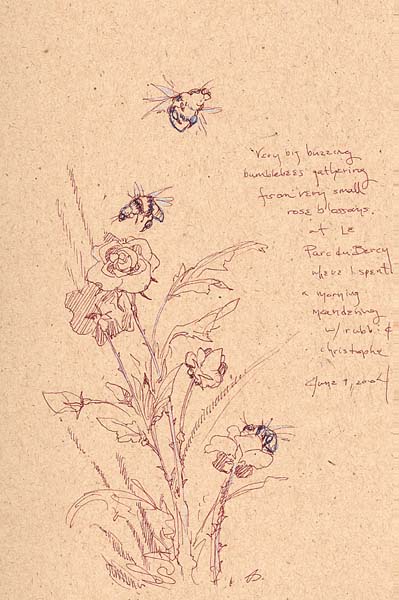 Very big buzzing
bumblebees gathering
from very small
rose blossoms.
at Le
Parc du Bercy
where I spent
a morning
meandering
w/ &
christophe
June 9, 2004